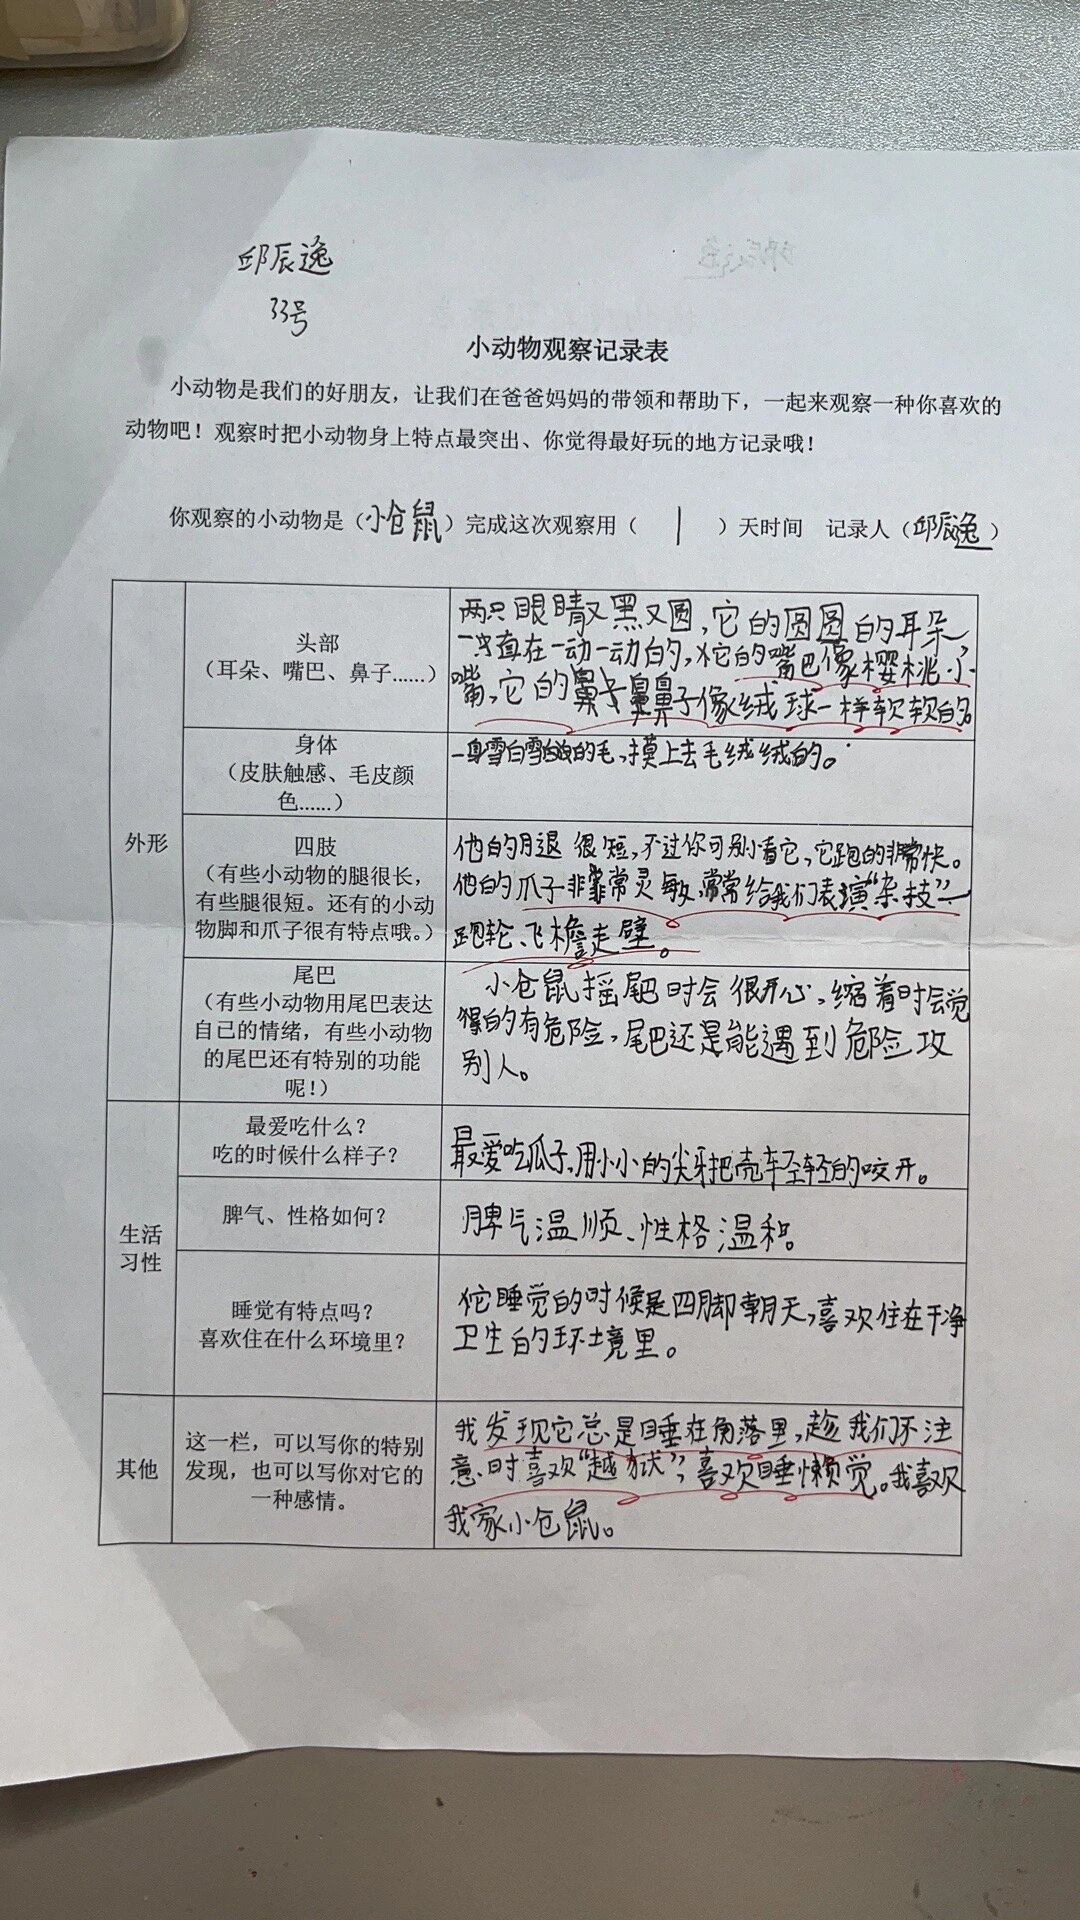 邱辰逸
33号
小动物观察记录表
小动物是我们的好朋友，让我们在爸爸妈妈的带领和帮助下，一起来观察一种你喜欢的
动物吧！观察时把小动物身上特点最突出、你觉得最好玩的地方记录哦！
你观察的小动物是（小仓鼠）完成这次观察用（ 1 ）天时间 记录人（邱辰逸）
外形
头部
（耳朵、嘴巴、鼻子......）
两只眼睛又黑又圆，它的圆圆的耳朵
一直在一动一动的，它的嘴巴像樱桃小
嘴，它的鼻子像绒球一样软软的
身体
（皮肤触感、毛皮颜
色......）
一身雪白雪白的毛，摸上去毛绒绒的。
四肢
（有些小动物的腿很长，
有些腿很短。还有的小动
物脚和爪子很有特点哦。）
他的腿很短，不过你可别小看它，它跑的非常快。
他的爪子非常灵敏，常常给我们表演“杂技”—
跑轮、飞檐走壁。
尾巴
（有些小动物用尾巴表达
自己的情绪，有些小动物
的尾巴还有特别的功能
呢！）
小仓鼠摇尾巴时会很开心，缩着时会觉
得的有危险，尾巴还是能遇到危险攻
别人。
生活
习性
最爱吃什么？
吃的时候什么样子？
最爱吃瓜子，用小小的尖牙把壳轻轻的咬开。
脾气、性格如何？
脾气温顺、性格温和。
睡觉有特点吗？
喜欢住在什么环境里？
它睡觉的时候是四脚朝天，喜欢住在干净
卫生的环境里。
其他
这一栏，可以写你的特别
发现，也可以写你对它的
一种感情。
我发现它总是睡在角落里，趁我们不注
意时喜欢“越狱”，喜欢睡懒觉。我喜欢
我家小仓鼠。